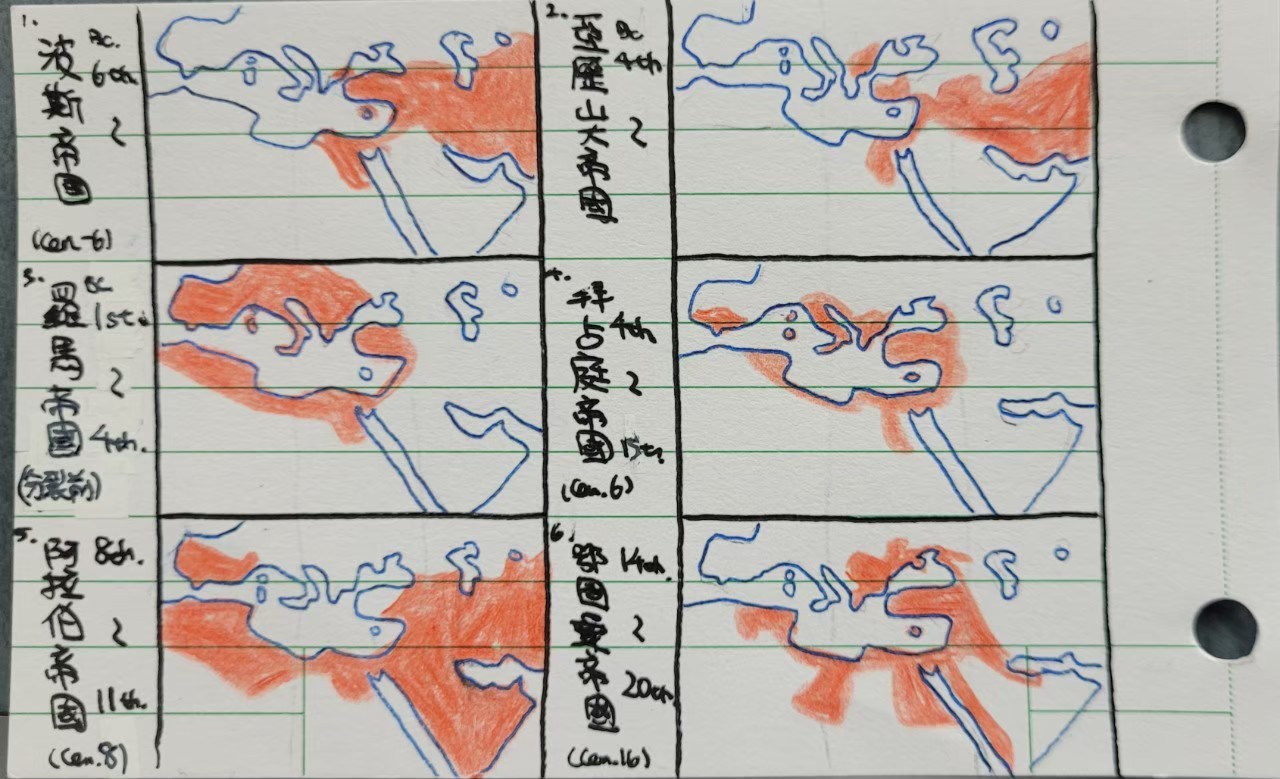 1.
波斯帝國
BC.
6th
~
(Cen.-6)
2.
亞歷山大帝國
BC
4th
~
3.
羅馬帝國
BC
1st.
~
4th.
(分裂前)
4.
拜占庭帝國
4th
~
15th.
(Cen.6)
5.
阿拉伯帝國
8th.
~
11th.
(Cen.8)
6.
鄂圖曼帝國
14th.
~
20th.
(Cen.16)